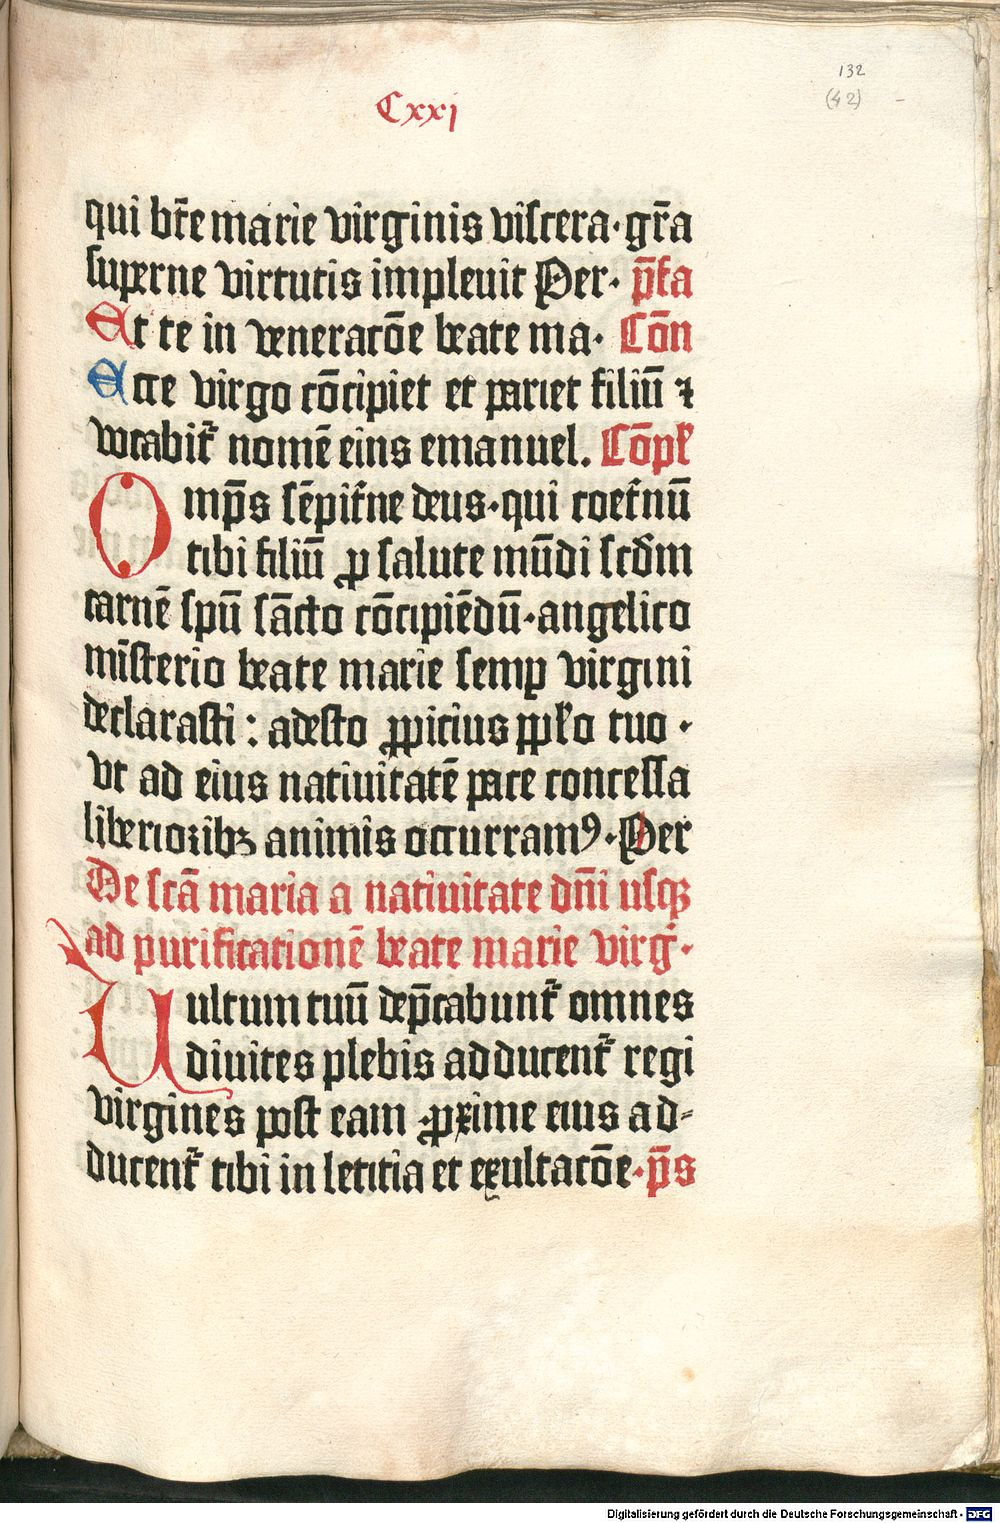 132
(42)
Cxxi
qui bt̄e marie virginis viscera · gr̄a
superne virtutis impleuit Per · p̄fa
Et te in veneratōe beate ma · Cōn
Ecce virgo cōcipiet et pariet filiū ⁊
vocabit᷑ nomē eius emanuel. Cōpl̄
Omp̄s sēpit̄ne deus · qui coet̄nū
tibi filiū ꝓ salute mūdi scd̄m
carnē spū sācto cōcipiēdū · angelico
mīsterio beate marie semꝑ virgini
declarasti : adesto ꝓpicius ppl̄o tuo ·
vt ad eius natiuitatē pace concessa
liberioribꝫ animis occurramꝰ · Per
De scā maria a natiuitate dn̄i usqꝫ
ad purificationē beate marie virḡ ·
Uultum tuū dep̄cabunt᷑ omnes
diuites plebis adducent᷑ regi
virgines post eam ꝓxime eius ad-
ducent᷑ tibi in leticia et exultatōe · p̄s
Digitalisierung gefördert durch die Deutsche Forschungsgemeinschaft - DFG